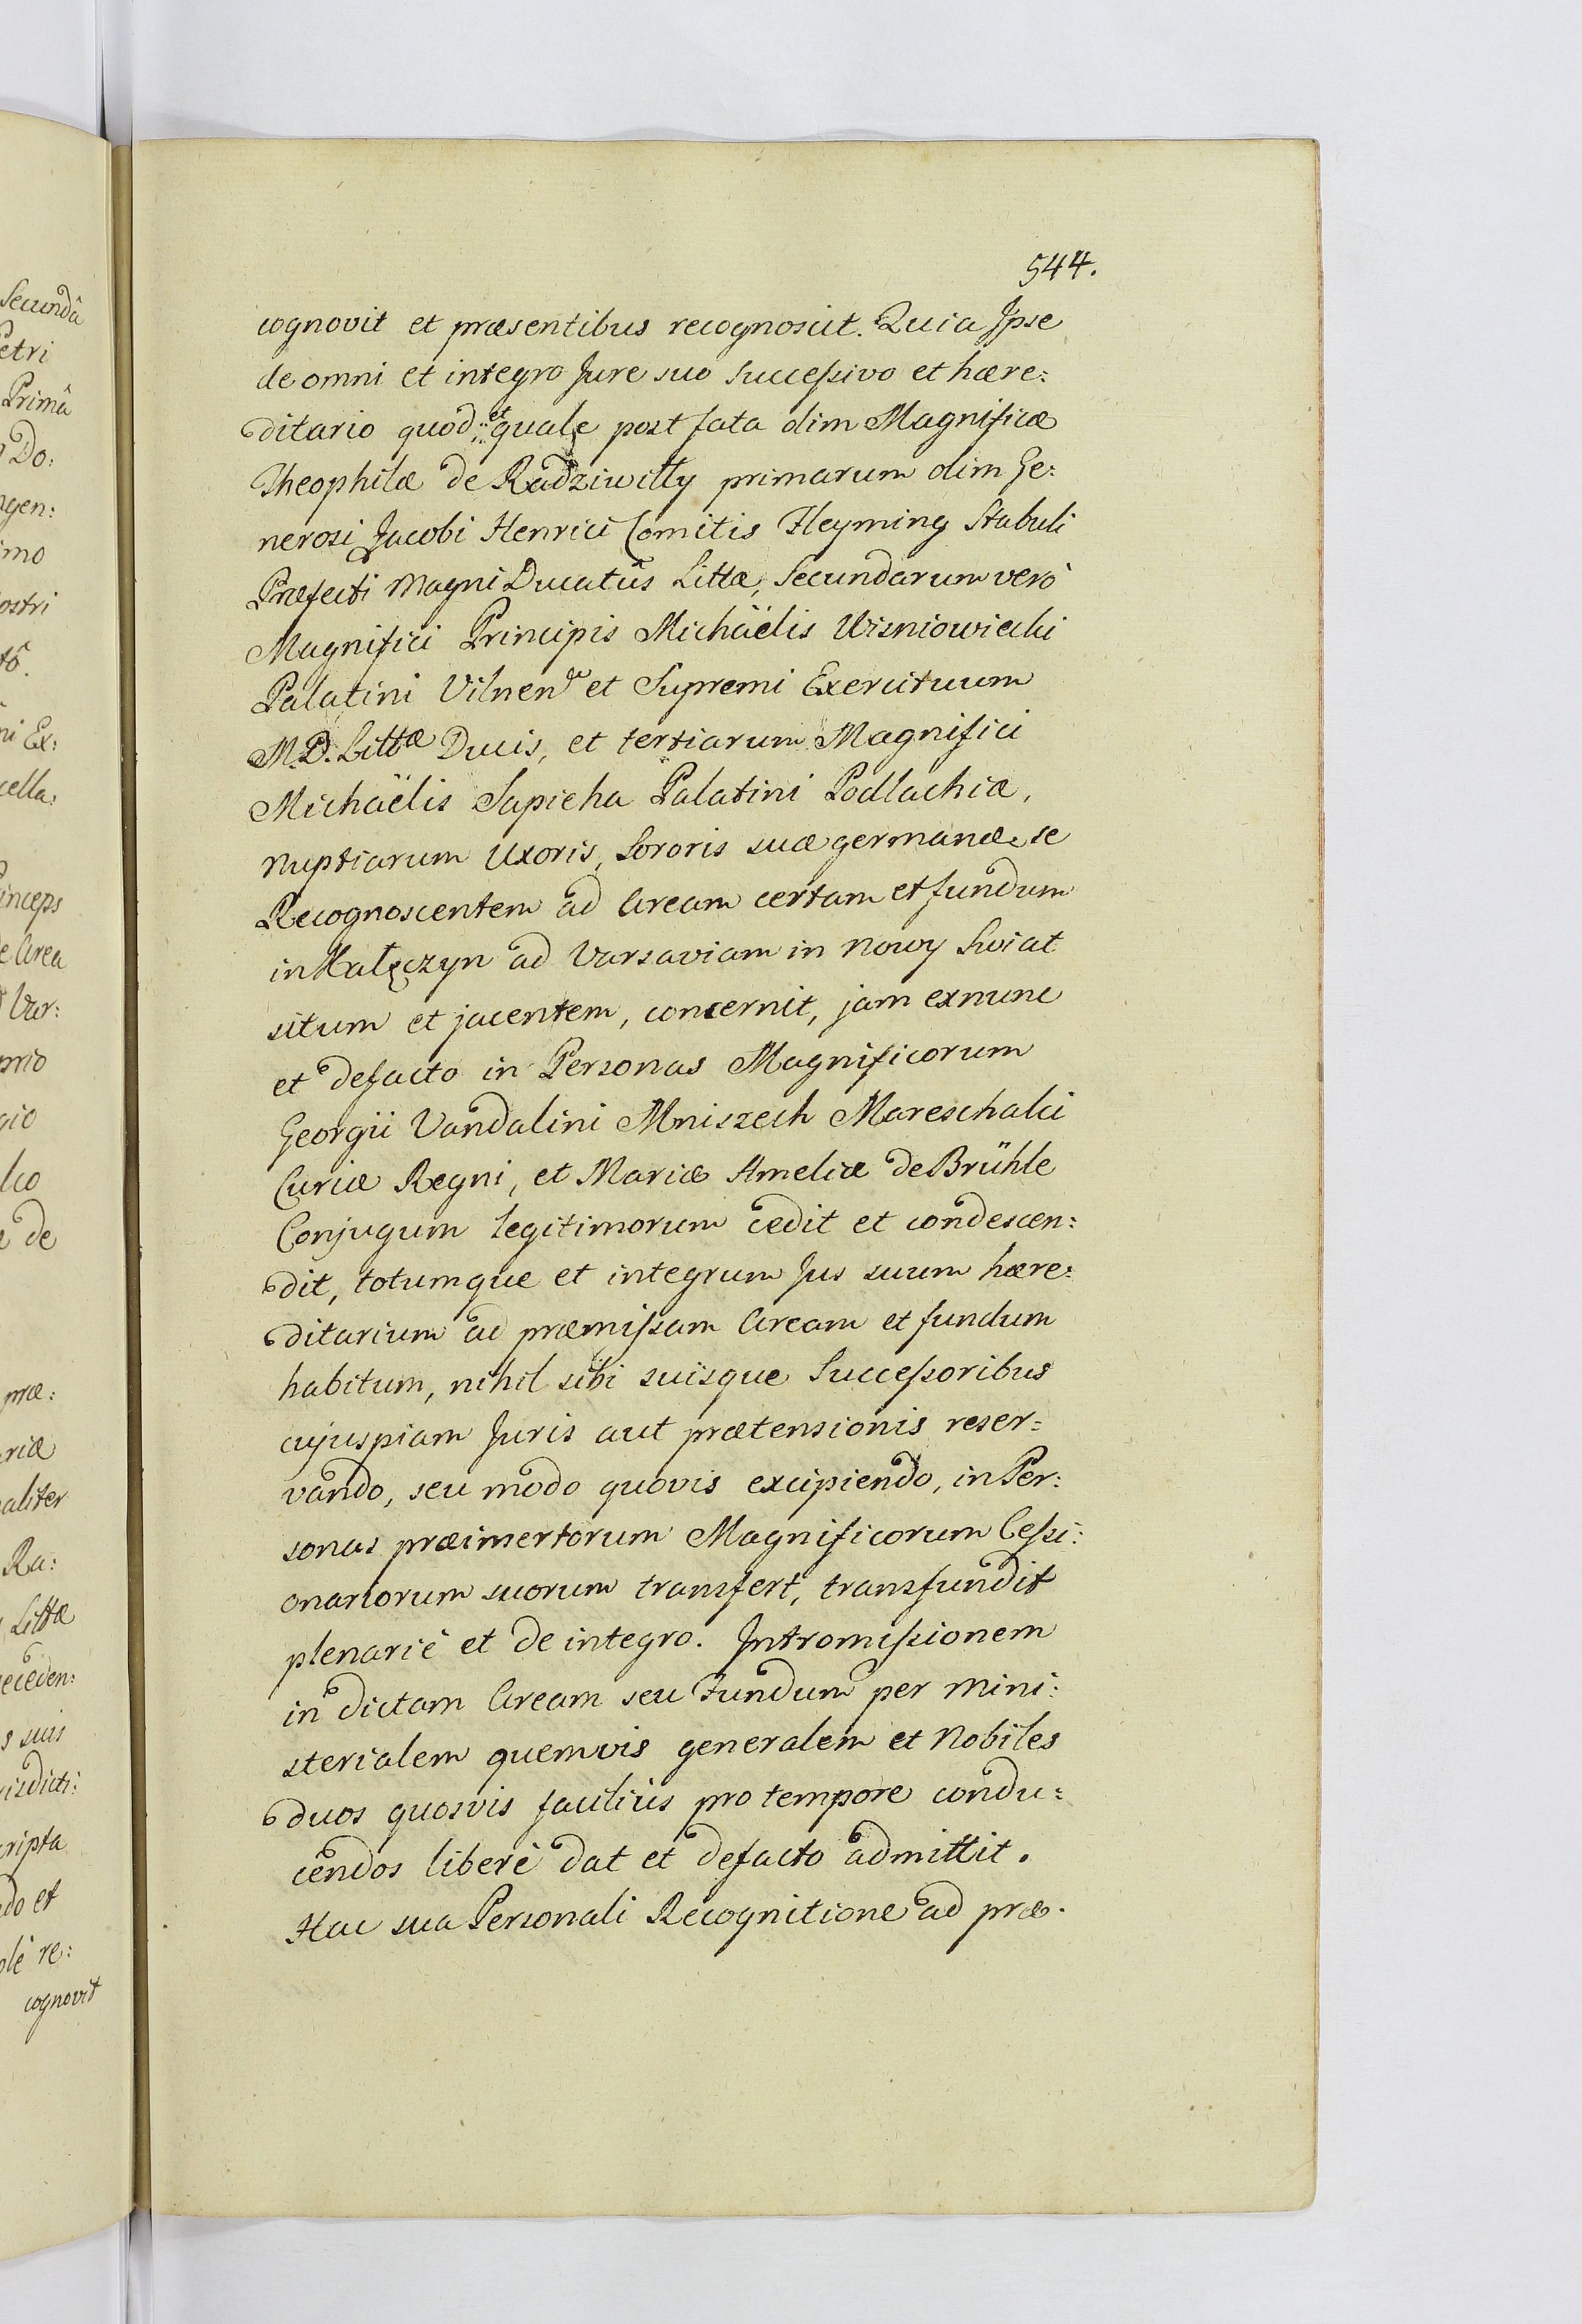 Secundâ
etri
Primâ
Do:
ngen:
imo
ostri
ni Ex:
cella:
inceps
e Area
Var:
mio
gio
lco
de
præ:
riæ
aliter
Ra:
Littæ
eceden:
s suis
isdicti:
ripta
do et
olè re:
cognovit
544.
cognovit et præsentibus recognoscit. Quia Jpse
de omni et integro Jure suo Successivo et hære:
ditario quod et quale post fata olim Magnificæ
Theophilæ de Radziwiłły primarum olim Ge:
nerosi Jacobi Henrici Comitis Fleyming Stabuli
Præfecti Magni Ducatûs Littæ, Secundarum verò
Magnifici Principis Michäelis Wisniowiecki
Palatini Vilnen et Supremi Exercituum
M. D. Littæ Ducis, et tertiarum Magnifici
Michäelis Sapieha Palatini Podlachiæ,
Nuptiarum Uxoris, Sororis suæ germanæ, se
Recognoscentem ad Aream certam et fundum
in Kałęczyn ad Varsaviam in Nowy Swiat
situm et jacentem, concernit, jam exnunc
et defacto in Personas Magnificorum
Georgii Vandalini Mniszech Mareschalci
Curiæ Regni, et Mariæ Ameliæ de Brühle
Conjugum legitimorum cedit et condescen:
dit, totumque et integrum Jus suum hære:
ditarium ad præmissam Aream et fundum
habitum, nihil sibi suisque Successoribus
cujuspiam Juris aut prætensionis reser:
vando, seu modo quovis excipiendo, in Per:
sonas præinsertorum Magnificorum Cessi:
onariorum suorum transfert, transfundit
plenariè et de integro. Intromissionem
in dictam Aream seu Fundum per Mini:
sterialem quemvis generalem et Nobiles
duos quosvis faciliùs pro tempore condu:
cendos liberè dat et defacto admittit.
Hac sua Personali Recognitione ad præ.